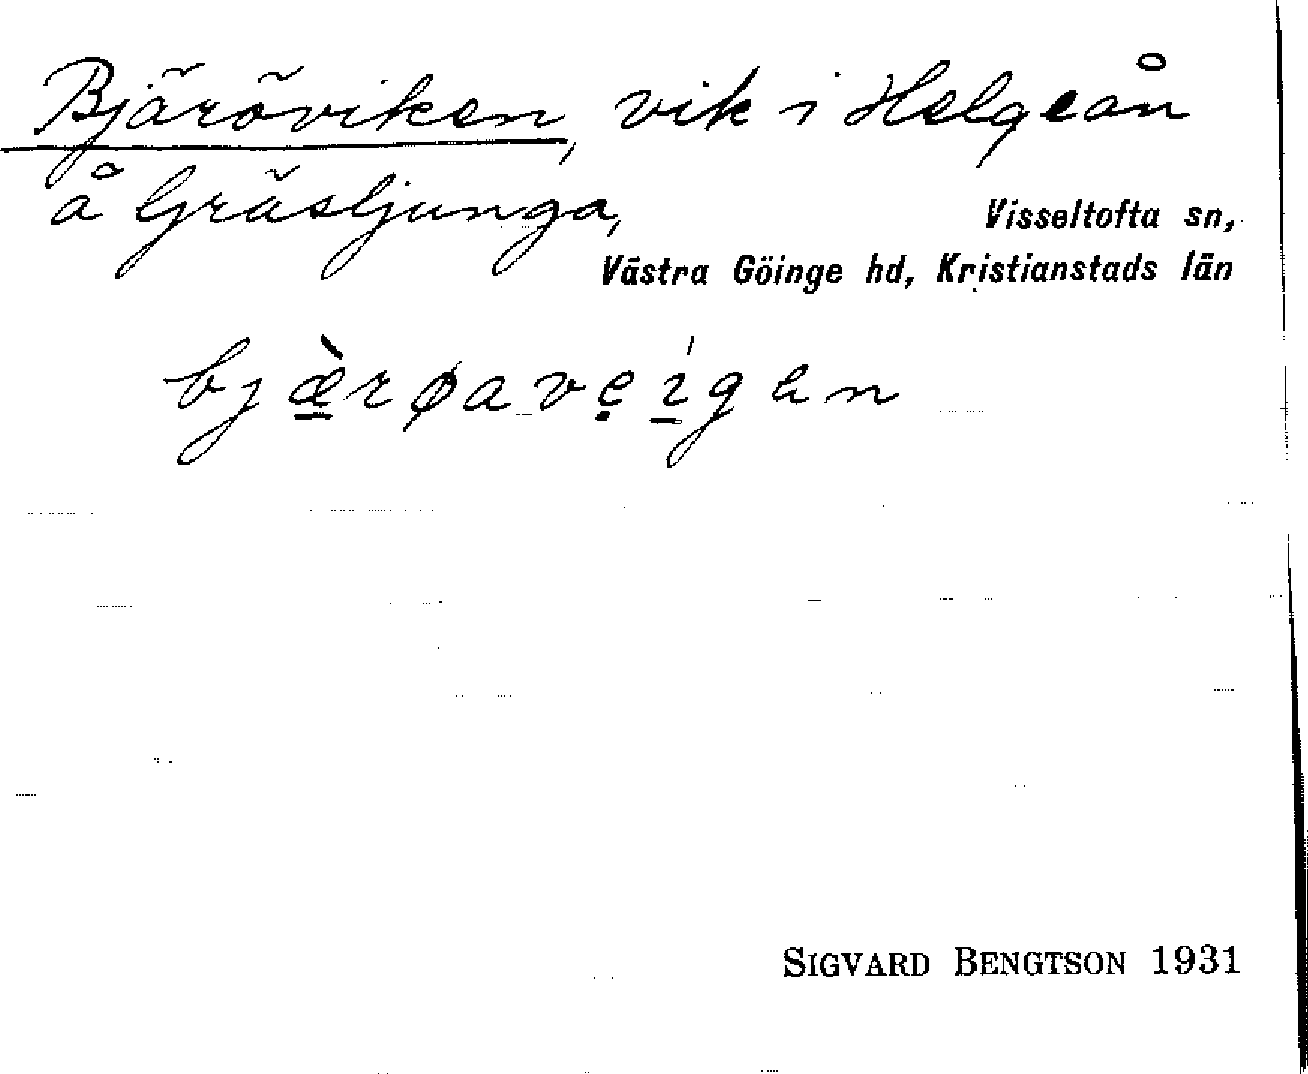 Bjäröviken, vik i Helgeån
å Gräsljunga,
Visseltofta sn,
Västra Göinge hd, Kristianstads län
bjæ̱̀røavẹí̱gen
SIGVARD BENGTSON 1931